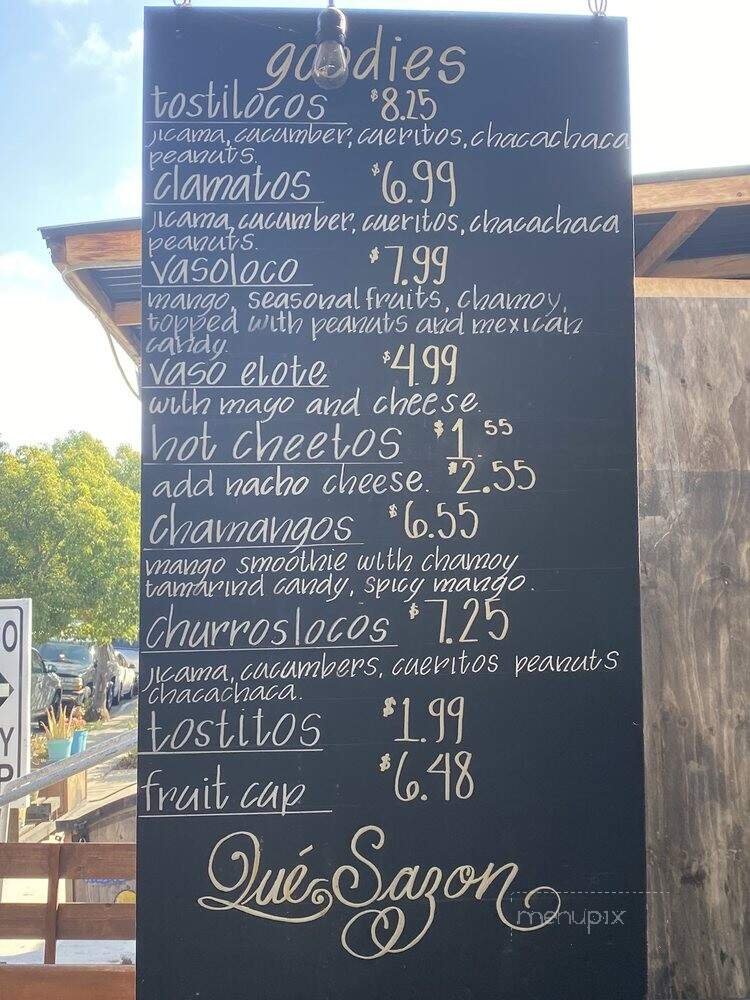 goodies
tostilocos $8.25
jicama, cucumber, cueritos, chacachaca
peanuts.
clamatos $6.99
jicama, cucumber, cueritos, chacachaca
peanuts.
vasoloco $7.99
mango, seasonal fruits, chamoy,
topped with peanuts and mexican
candy.
vaso elote $4.99
with mayo and cheese.
hot cheetos $1.55
add nacho cheese. $2.55
chamangos $6.55
mango smoothie with chamoy
tamarind candy, spicy mango.
churroslocos $7.25
jicama, cucumbers, cueritos peanuts
chacachaca.
tostitos $1.99
fruit cup $6.48
Qué Sazon
menupix